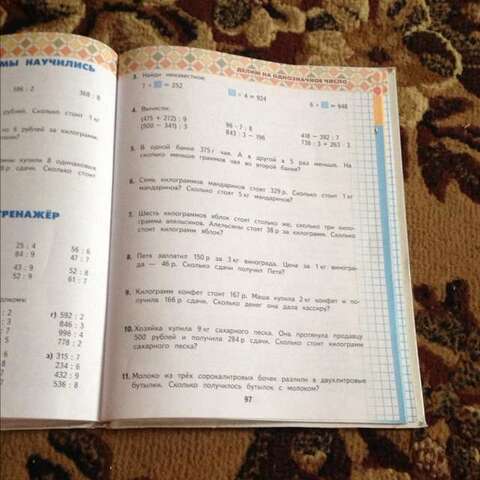 МЫ НАУЧИЛИСЬ
386 : 2 368 : 8
рублей. Сколько стоит 1 кг
по 6 рублей за килограмм.
купили 8 одинаковых
р сдачи. Сколько стоит
ТРЕНАЖЁР
25 : 4 56 : 6
84 : 9 47 : 7
43 : 9 52 : 8
52 : 9 61 : 7
г) 592 : 2
846 : 3
996 : 4
778 : 2
а) 315 : 7
234 : 6
432 : 9
536 : 8
ДЕЛИМ НА ОДНОЗНАЧНОЕ ЧИСЛО
3. Найди неизвестное:
7 · = 252 · 4 = 924 6 · = 948
4. Вычисли:
(475 + 272) : 9 96 · 7 : 8 418 − 392 : 7
(500 − 341) : 3 843 : 3 − 196 738 : 3 + 263 · 3
5. В одной банке 375 г чая. А в другой в 5 раз меньше. На
сколько меньше граммов чая во второй банке?
6. Семь килограммов мандаринов стоят 329 р. Сколько стоит 1 кг
мандаринов? Сколько стоят 5 кг мандаринов?
7. Шесть килограммов яблок стоят столько же, сколько три кило-
грамма апельсинов. Апельсины стоят 38 р за килограмм. Сколько
стоит килограмм яблок?
8. Петя заплатил 150 р за 3 кг винограда. Цена за 1 кг виногра-
да — 46 р. Сколько сдачи получил Петя?
9. Килограмм конфет стоит 167 р. Маша купила 2 кг конфет и по-
лучила 166 р сдачи. Сколько денег она дала кассиру?
10. Хозяйка купила 9 кг сахарного песка. Она протянула продавцу
500 рублей и получила 284 р сдачи. Сколько стоит килограмм
сахарного песка?
11. Молоко из трёх сорокалитровых бочек разлили в двухлитровые
бутылки. Сколько получилось бутылок с молоком?
97